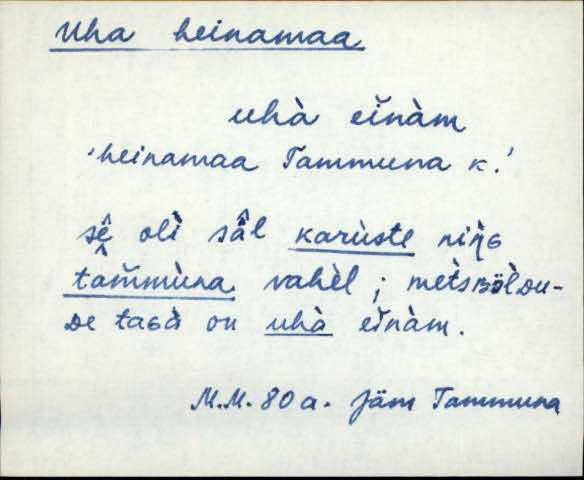 Uha heinamaa
uhà eĭnàm
'heinamaa Tammuna k.'
sê̬ olì̬ sâl karùste niŋ̀G
tàm̆mùna vahèl; mètsʙö̀lᴅu-
ᴅe taɢà on uhà eĭnàm.
M.M. 80 a. Jäm Tammuna